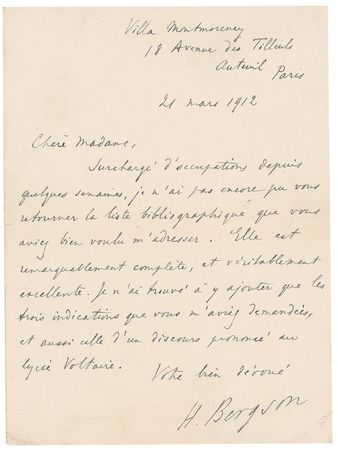 Villa Montmorency
18 Avenue des Tilleuls
Auteuil Paris
21 mars 1912
Chère Madame,
Surchargé d'occupations depuis
quelques semaines, je n'ai pas encore pu vous
retourner la liste bibliographique que vous
aviez bien voulu m'adresser. Elle est
remarquablement complète, et véritablement
excellente. Je n'ai trouvé à y ajouter que les
trois indications que vous m'aviez demandées,
et aussi celle d'un discours prononcé au
lycée Voltaire.
Votre bien dévoué
H. Bergson